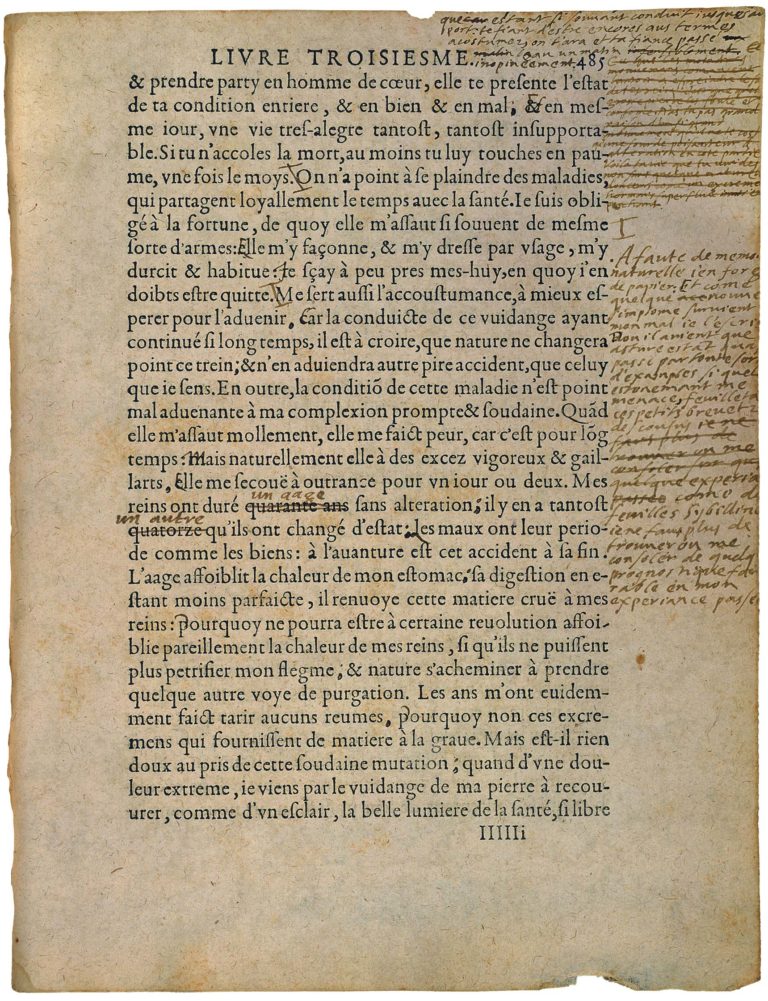 que estant si souvant conduit iusques au
port: te fiant destre encores aus termes
acostumez on t'ara et ta fiance passé
l'eau un matin
inopineement.
LIVRE TROISIESME. 485
& prendre party en homme de cœur, elle te presente l'estat
de ta condition entiere, & en bien & en mal; & en mes-
me iour, vne vie tres-alegre tantost, tantost insupporta-
ble. Si tu n'accoles la mort, au moins tu luy touches en pau-
me, vne fois le moys. On n'a point à se plaindre des maladies,
qui partagent loyallement le temps auec la santé. Ie suis obli-
gé à la fortune, de quoy elle m'assaut si souuent de mesme
sorte d'armes: Elle m'y façonne, & m'y dresse par vsage, m'y
durcit & habitue: Ie sçay à peu pres mes-huy, en quoy i'en
doibts estre quitte. Me sert aussi l'accoustumance, à mieux es-
perer pour l'aduenir. Car la conduicte de ce vuidange ayant
continué si long temps, il est à croire, que nature ne changera
point ce trein; & n'en aduiendra autre pire accident, que celuy
que ie sens. En outre, la conditiõ de cette maladie n'est point
mal aduenante à ma complexion prompte & soudaine. Quãd
elle m'assaut mollement, elle me faict peur, car c'est pour lõg
temps: Mais naturellement elle à des excez vigoreux & gail-
larts, Elle me secouë à outrance pour vn iour ou deux. Mes
un aage
reins ont duré quarante ans sans alteration; il y en a tantost
un autre
quatorze qu'ils ont changé d'estat: les maux ont leur perio-
de comme les biens: à l'auanture est cet accident à sa fin.
L'aage affoiblit la chaleur de mon estomac, sa digestion en e-
stant moins parfaicte, il renuoye cette matiere cruë à mes
reins: Pourquoy ne pourra estre à certaine reuolution affoi-
blie pareillement la chaleur de mes reins, si qu'ils ne puissent
plus petrifier mon flegme; & nature s'acheminer à prendre
quelque autre voye de purgation. Les ans m'ont euidem-
ment faict tarir aucuns reumes, Pourquoy non ces excre-
mens qui fournissent de matiere à la graue. Mais est-il rien
doux au pris de cette soudaine mutation; quand d'vne dou-
leur extreme, ie viens par le vuidange de ma pierre à recou-
urer, comme d'vn esclair, la belle lumiere de la santé, si libre
IIIIIi
A faute de memo
naturelle i'en forg
de papier. Et come
quelque nouveau
simptome survient
mon mal ie l'escri
D'ou il avient que
asture estat qua
passe par toute sor
d'examples si quel
estonement me
menace, feuilleta
ces petits brevetz
descousus
come de
feuilles Sybillin
ie ne faux plus de
trouver ou me
consoler de quelq
prognostique fav
rable en mon
experiance passe